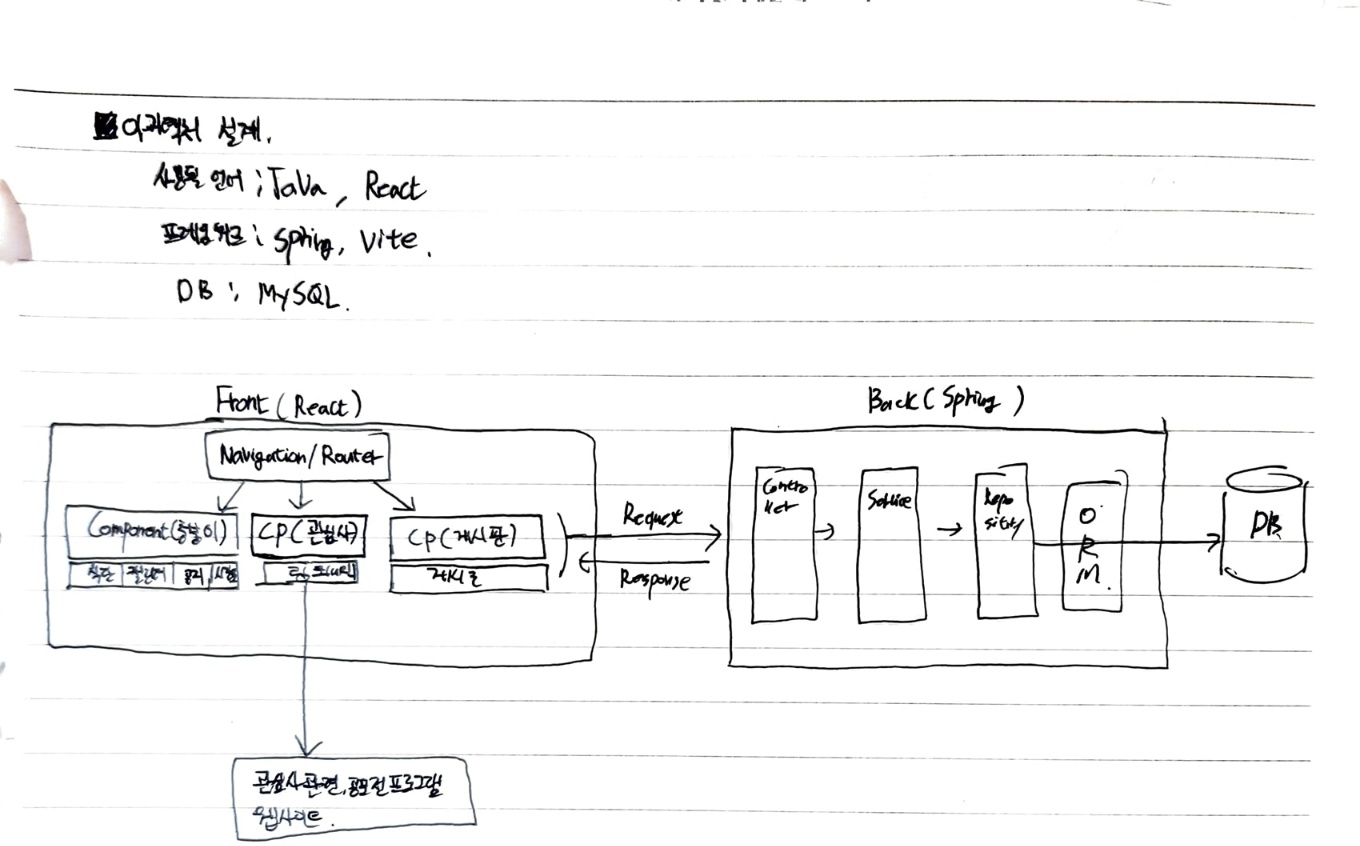 아키텍처 설계.
사용될 언어 ; Java, React
프레임워크 : Spring, Vite.
DB : MySQL.
Front (React)
Back (Spring)
Navigation/Router
Component(총발이)
CP(관심사)
CP(게시판)
식단
공지
게시글
Request
Response
Controller
Service
Repository
ORM.
DB
관심사 관련, 공모전 프로그램
웹사이트.